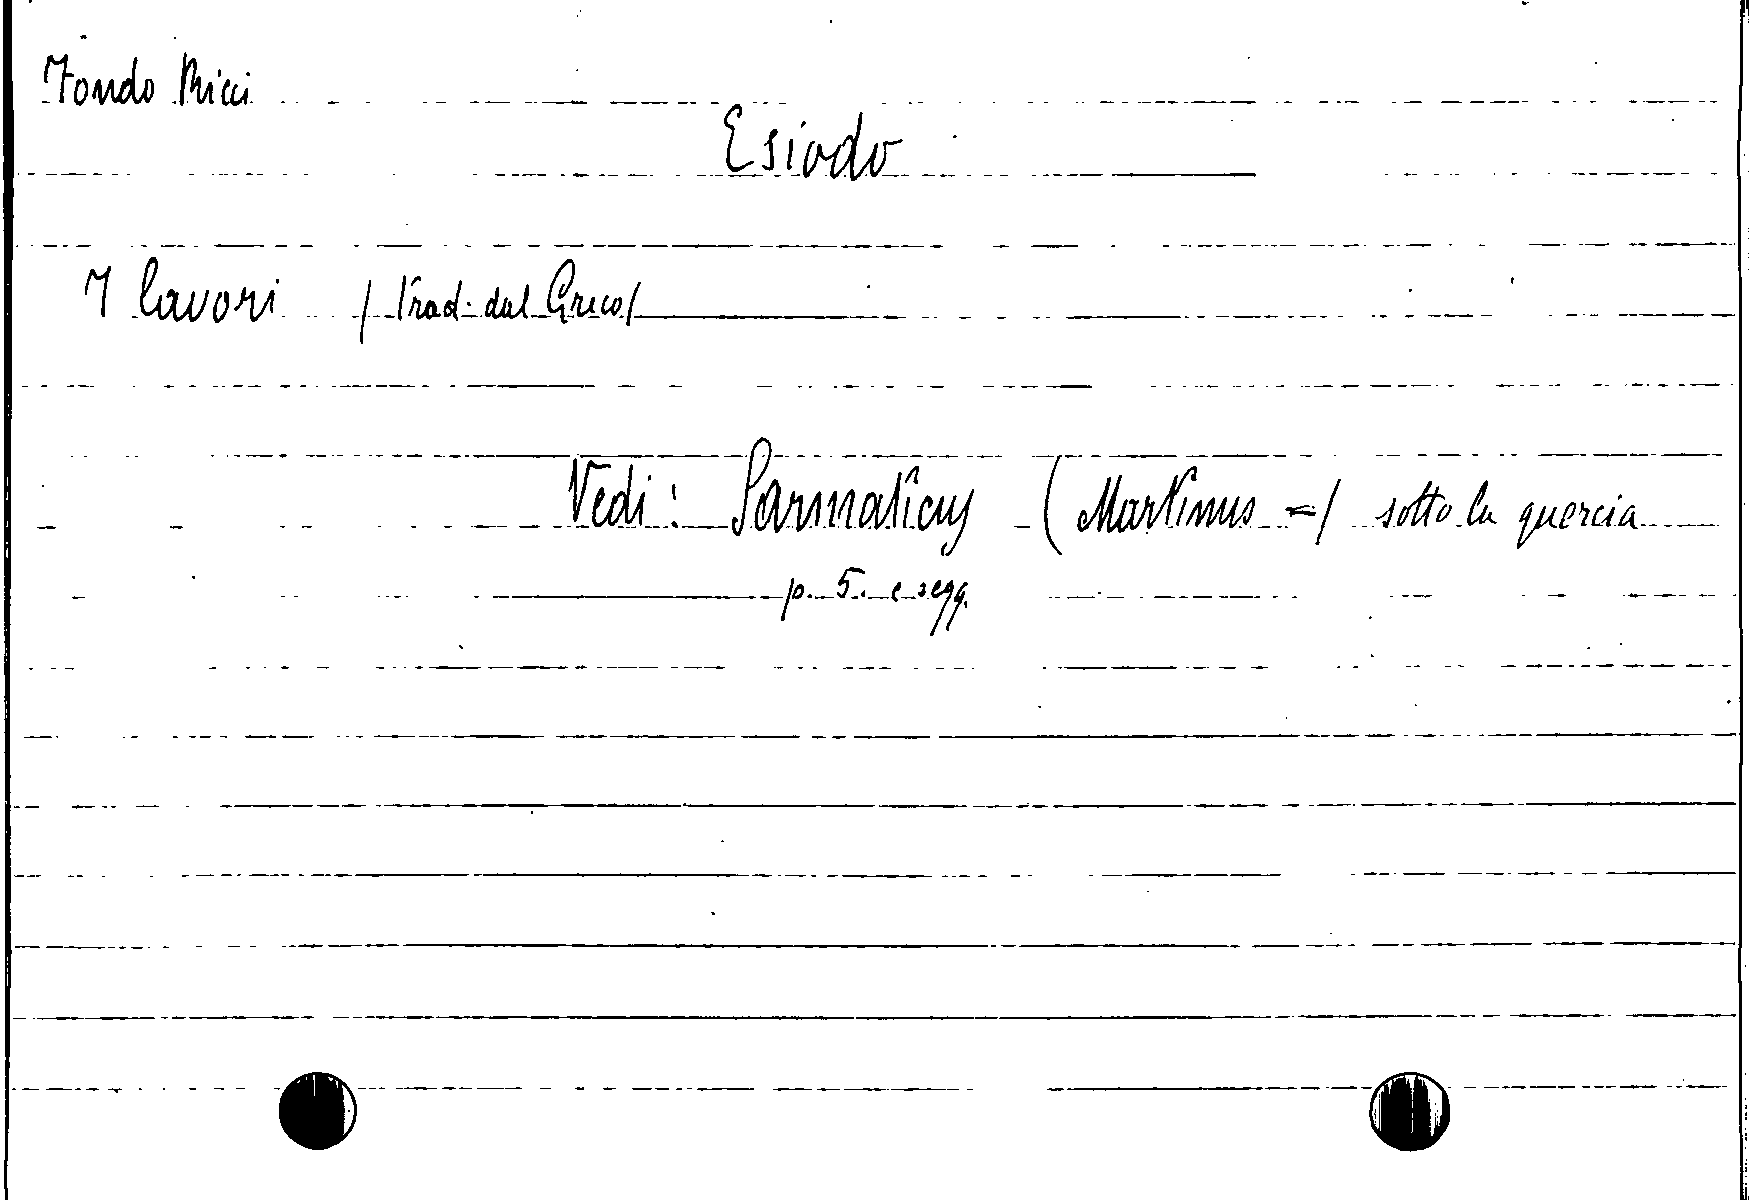 Fondo Ricci
Esiodo
I lavori / Trad. dal Greco/
Vedi: Sarmaticus (Martinus =/ sotto la quercia
p. 5. e segg.